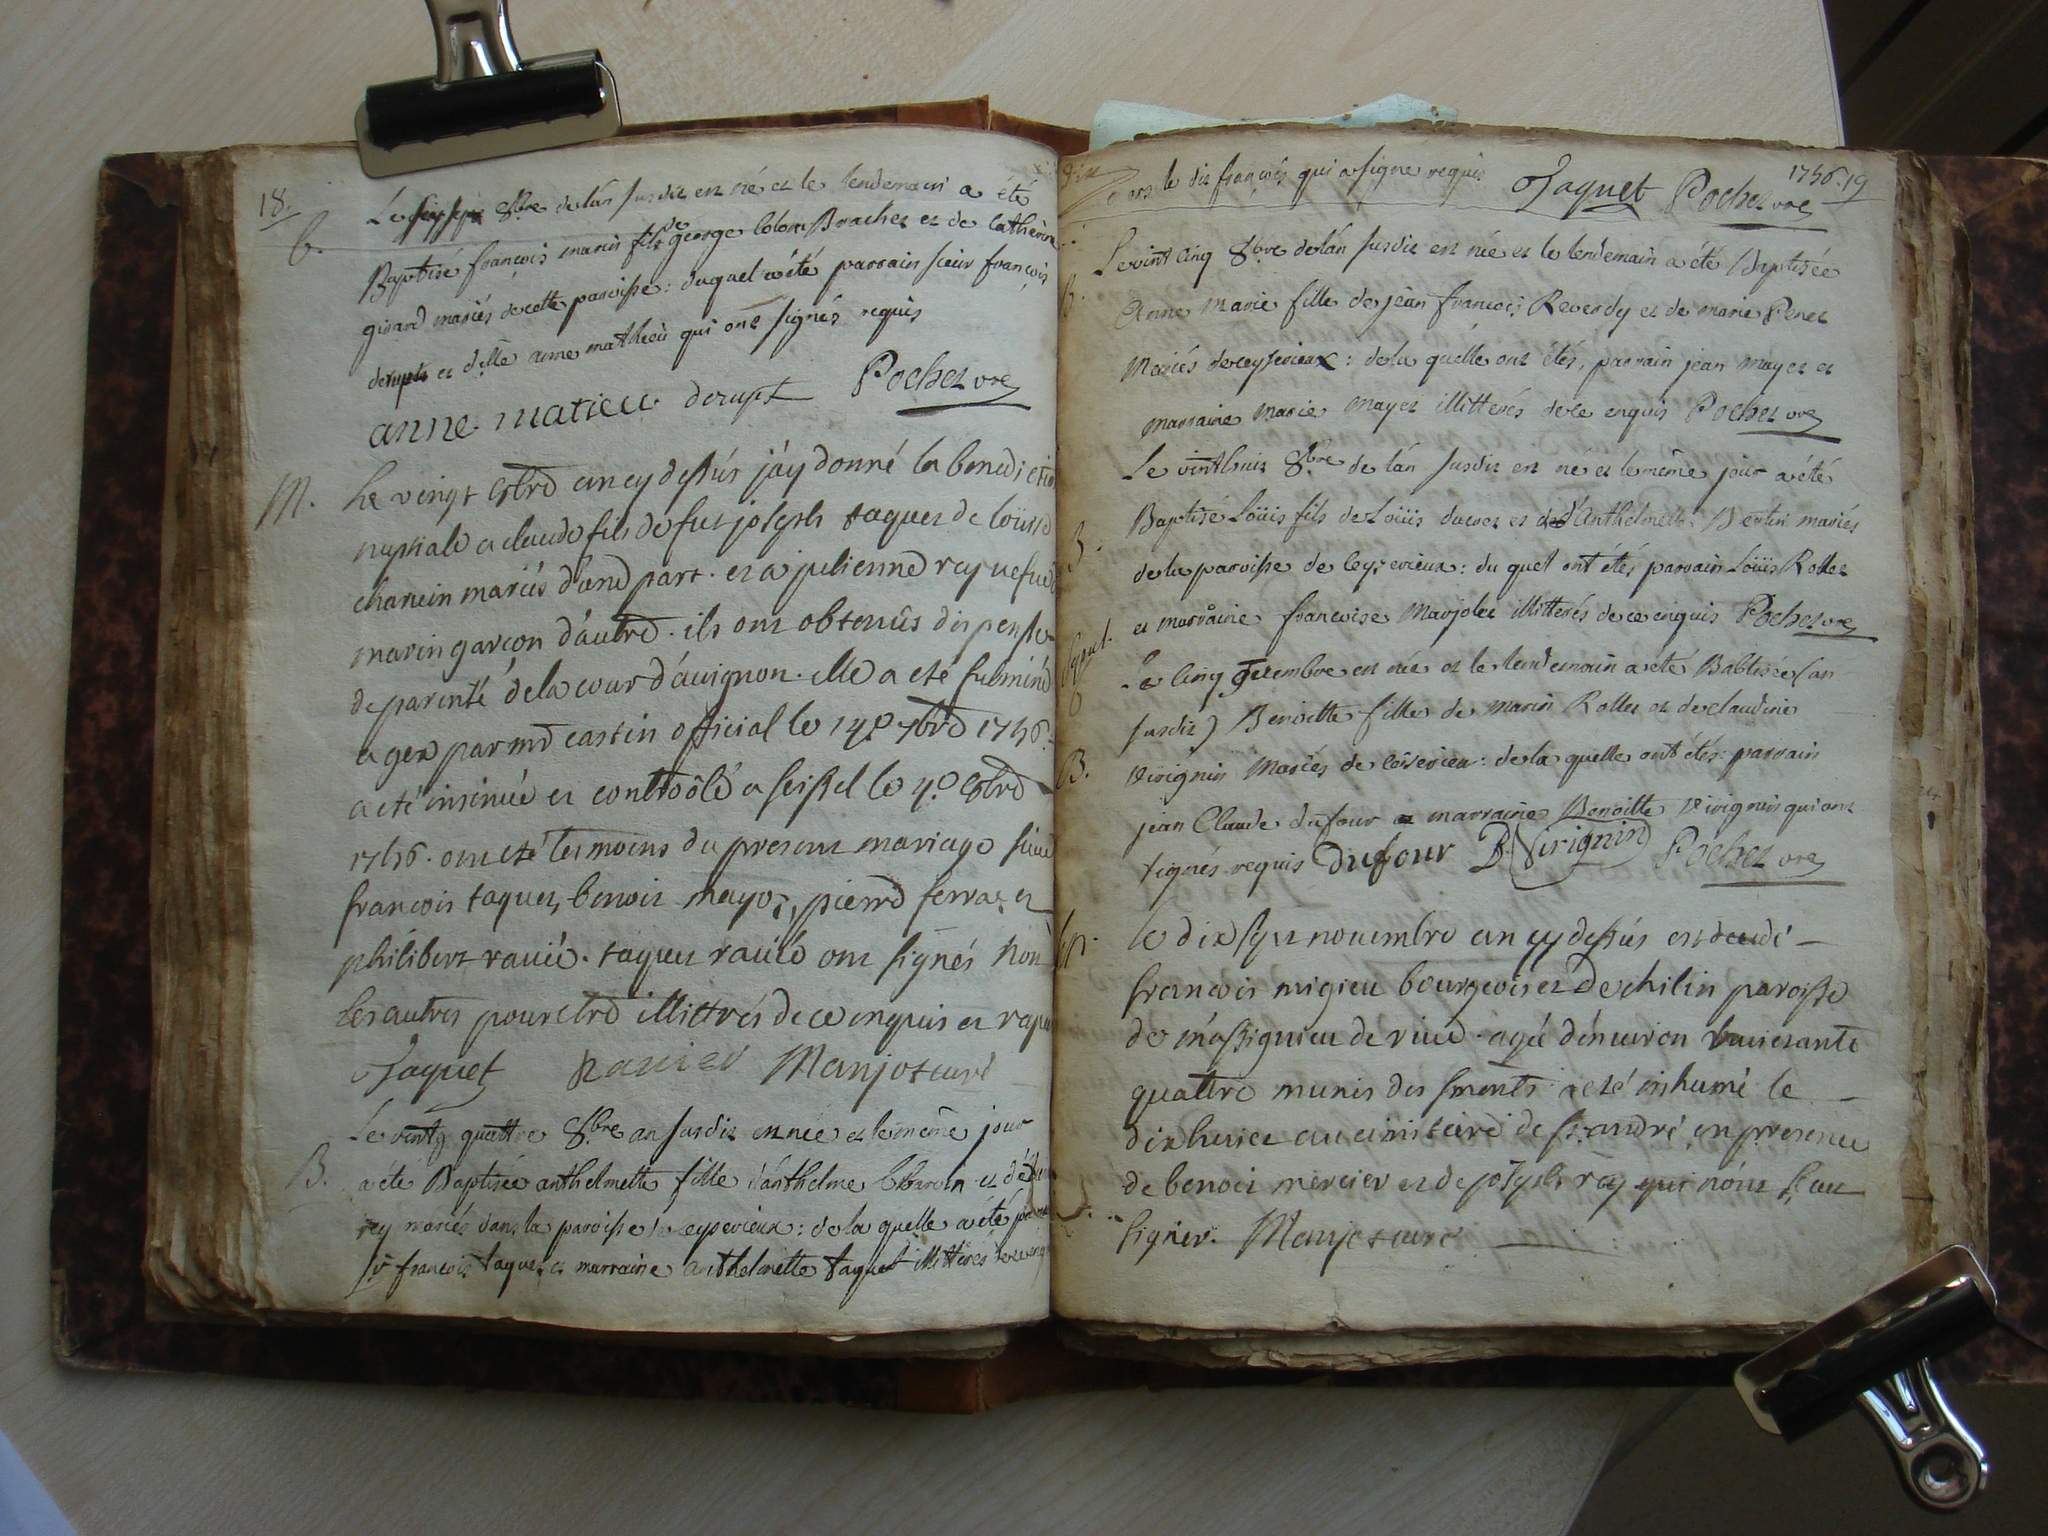 18.
B. Le 8bre de l'an susdit est né et le lendemain a été
Baptisé françois marin fils de george Colom Brachet et de Catherine
girard mariés de cette paroisse: duquel a été parrain sieur françois
derupt et d.lle anne mathieu qui ont signés requis
anne matieu derupt Pochet vre
M. Le vingt 8bre an cy dessus j'ay donné la benediction
nuptiale a claude fils de fut joseph taquet de
charin mariés d'une part. et a julienne rey
marin garcon d'autre. ils ont obtenûs dispense
de parenté de la cour d'avignon. elle a eté fulminé
a gex par mr castin official le 14e 7bre 1756.
a eté insinué et controôlé a seissel le 4e 8bre
1756. ont eté temoins du present mariage sieur
françois taquet, benoit mayot, pierre ferraz et
philibert ravié. taquet ravié ont signés non
les autres pour etre illittrés de ce enquis et
Jaquet ravier Manjot curé
Le vintg quattre 8bre an susdit est née et le même jour
B. a été Baptisée anthelmette fille d'anthelme et
rey mariés dans la paroisse de ceyserieux: de la quelle a été
sr françois taquet et marraine anthelmette taquet illitterés
1756. 19
le dit françois qui a signé requis Jaquet Pochet vre
Le vint cinq 8bre de l'an susdit est née et le lendemain a été Baptisée
B. Anne Marie fille de jean françois Reverdy et de marie Penet
Mariés de ceyserieux: de la quelle ont étés, parrain jean mayet et
marraine marie mayet illitterés de ce enquis Pochet vre
Le vinthuit 8bre de l'an susdit est né et le même jour a été
B. Baptisé Loüis fils de Loüis ducret et d'Anthelmette Bertin mariés
de la paroisse de ceyserieux: du quel ont étés parrain Loüis Rollet
et marraine francoise Marjolet illitterés de ce enquis Pochet vre
Le cinq 9cembre est née et le lendemain a été Babtisée (an
susdit) Benoitte fille de marin Rollet et de claudine
B. virignin Mariés de ceiserieu: de la quelle ont étés: parrain
jean Claude dufour et marraine Benoitte virignin qui ont
signés requis dufour B Virignin Pochet vre
le dix sept novembre an cy dessus est decedé
françois migieu bourgeois et de chilin paroisse
de massignieu de rive. agé d'environ
quattre munis des sments a eté inhumé le
dixhuict au cimitaire de st andré en presence
de benoit mercier et de joseph rey qui n'ont sceu
signer. Manjot curé